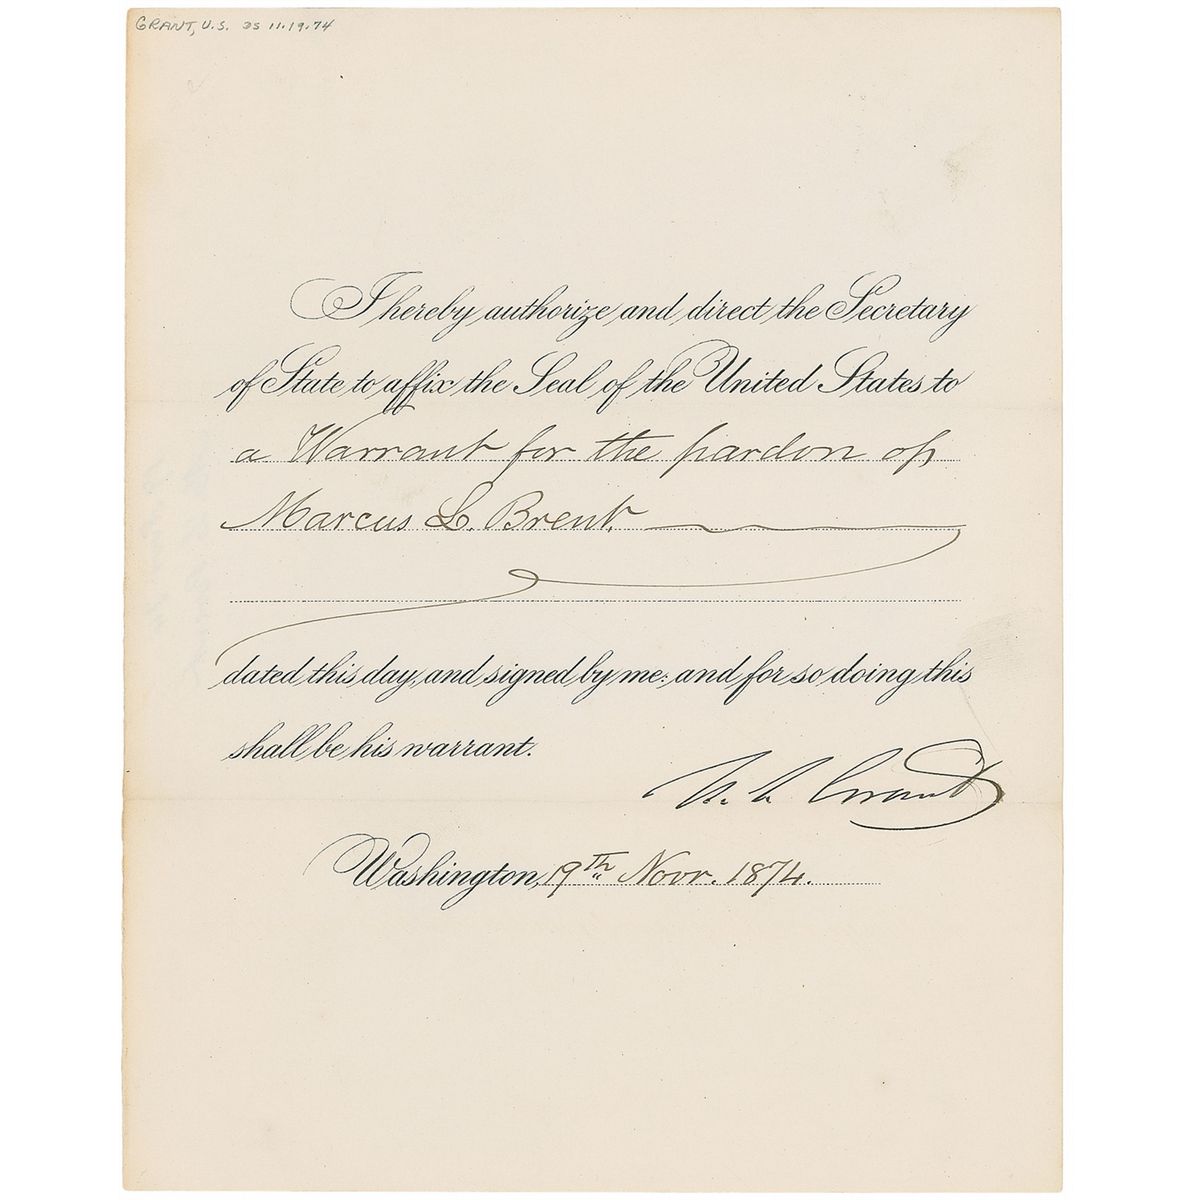 GRANT, U.S. DS 11.19.74
I hereby authorize and direct the Secretary
of State to affix the Seal of the United States to
a Warrant for the pardon of
Marcus L. Brent.
dated this day, and signed by me: and for so doing this
shall be his warrant.
U. S. Grant
Washington, 19th Novr. 1874.